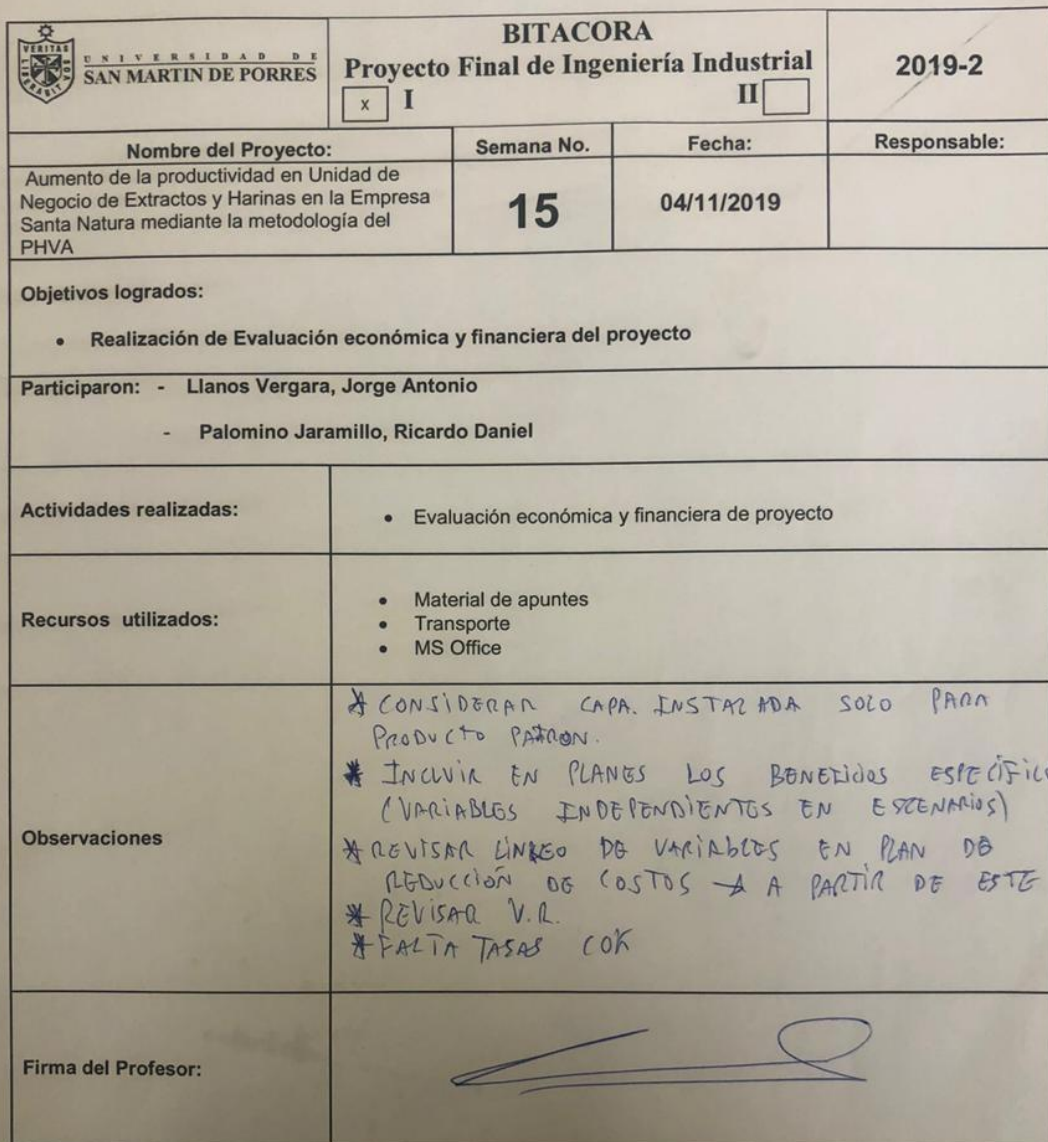 VERITAS
LIBERABIT VOS
UNIVERSIDAD DE
SAN MARTIN DE PORRES
BITACORA
Proyecto Final de Ingeniería Industrial
x I
II
2019-2
Nombre del Proyecto:
Semana No.
Fecha:
Responsable:
Aumento de la productividad en Unidad de
Negocio de Extractos y Harinas en la Empresa
Santa Natura mediante la metodología del
PHVA
15
04/11/2019
Objetivos logrados:
• Realización de Evaluación económica y financiera del proyecto
Participaron: - Llanos Vergara, Jorge Antonio
- Palomino Jaramillo, Ricardo Daniel
Actividades realizadas:
• Evaluación económica y financiera de proyecto
Recursos utilizados:
• Material de apuntes
• Transporte
• MS Office
Observaciones
* CONSIDERAR CAPA. INSTALADA SOLO PARA
PRODUCTO PATRON.
* INCLUIR EN PLANES LOS BENEFICIOS
(VARIABLES INDEPENDIENTES EN ESCENARIOS)
* REVISAR LINKEO DE VARIABLES EN PLAN DE
REDUCCIÓN DE COSTOS → A PARTIR DE ESTE
* REVISAR V.R.
* FALTA TASAS COK
Firma del Profesor: